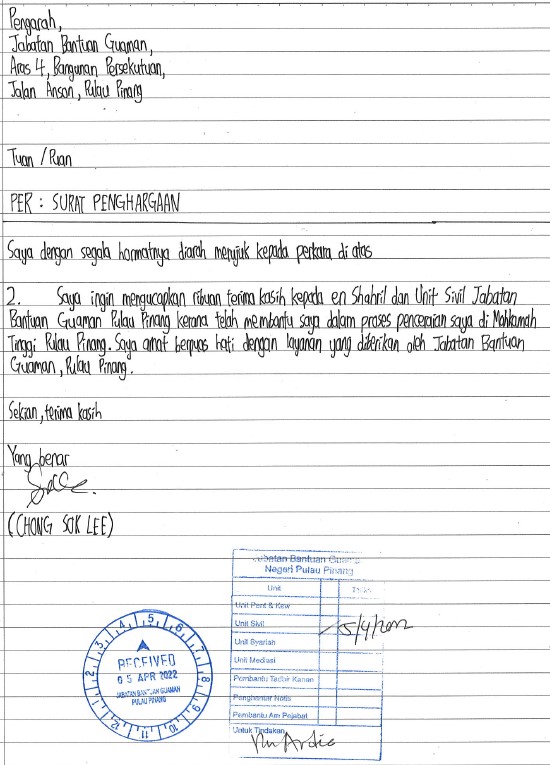 Pengarah,
Jabatan Bantuan Guaman,
Aras 4, Bangunan Persekutuan,
Jalan Anson, Pulau Pinang
Tuan / Puan
PER : SURAT PENGHARGAAN
Saya dengan segala hormatnya diarah merujuk kepada perkara di atas
2. Saya ingin mengucapkan ribuan terima kasih kepada en Shahril dan Unit Sivil Jabatan
Bantuan Guaman Pulau Pinang kerana telah membantu saya dalam proses penceraian saya di Mahkamah
Tinggi Pulau Pinang. Saya amat berpuas hati dengan layanan yang diberikan oleh Jabatan Bantuan
Guaman, Pulau Pinang.
Sekian, terima kasih
Yang benar
(CHONG SOK LEE)
Jabatan Bantuan Guaman
Negeri Pulau Pinang
Unit
Unit Pent & Kew
Unit Sivil 5/4/2022
Unit Syariah
Unit Mediasi
Pembantu Tadbir Kanan
Penghantar Notis
Pembantu Am Pejabat
Untuk Tindakan
1 2 3 4 5 6 7 8 9 10 11 12
RECEIVED
05 APR 2022
JABATAN BANTUAN GUAMAN
PULAU PINANG